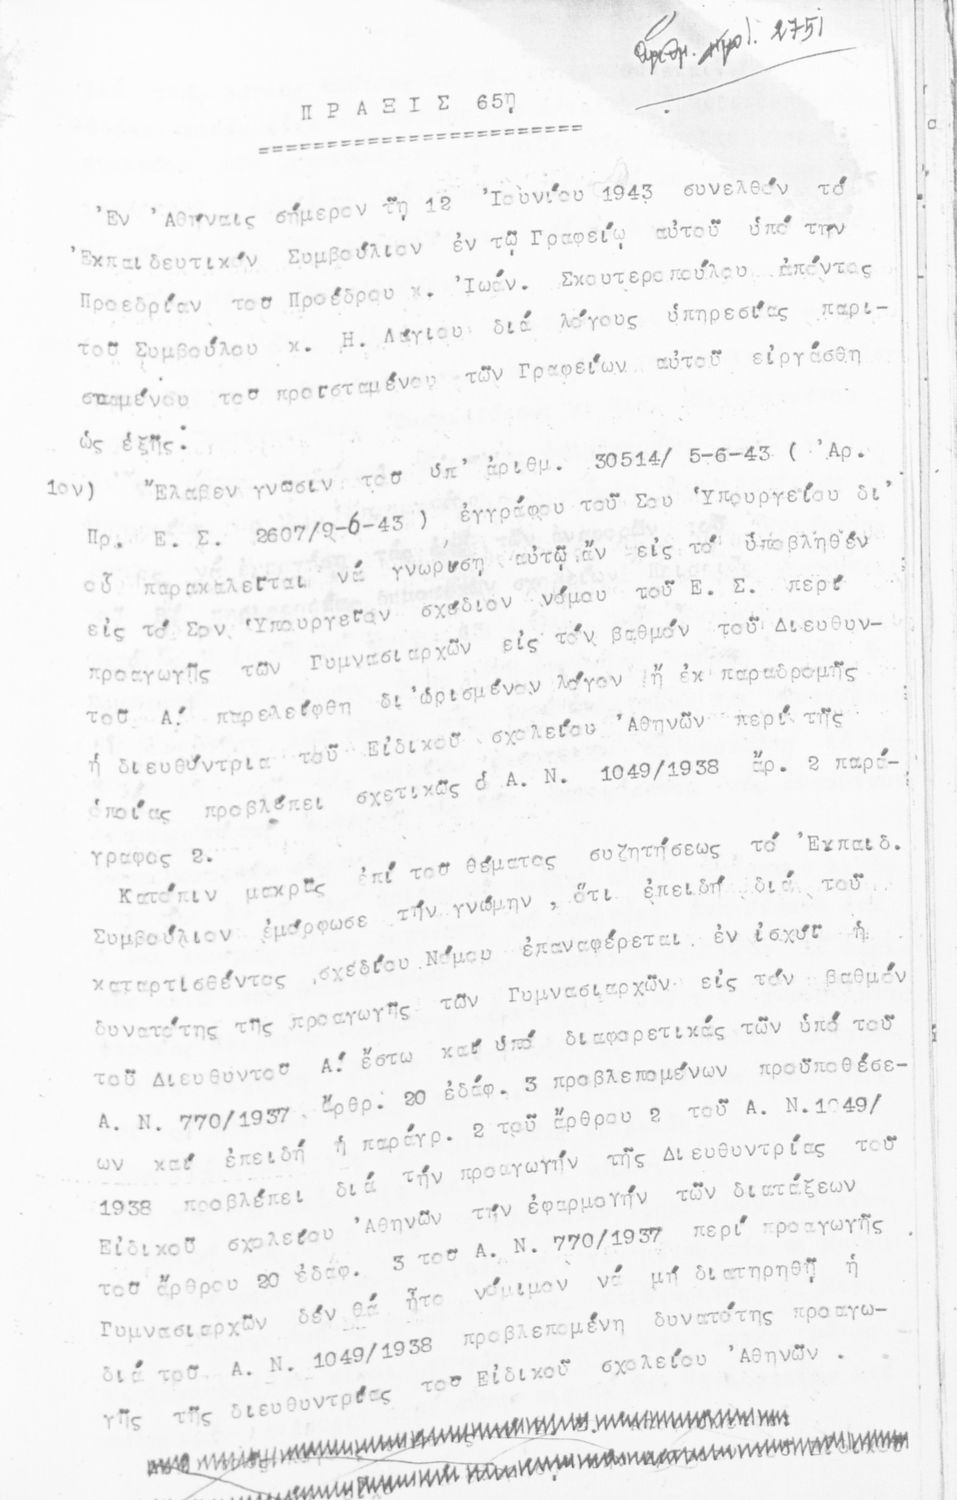 ἀριθμ. πρωτ. 2751
ΠΡΑΞΙΣ 65η
Ἐν Ἀθήναις σήμερον τῇ 12 Ἰουνίου 1943 συνελθόν τό
Ἐκπαιδευτικόν Συμβούλιον ἐν τῷ Γραφείῳ αὐτοῦ ὑπό την
Προεδρίαν τοῦ Προέδρου κ. Ἰωάν. Σκουτεροπούλου ἀπόντος
τοῦ Συμβούλου κ. Η. Λάγιου διά λόγους ὑπηρεσίας παρι-
σταμένου τοῦ προϊσταμένου τῶν Γραφείων αὐτοῦ εἰργάσθη
ὡς ἑξῆς:
1ον) Ἔλαβεν γνῶσιν τοῦ ὑπ' ἀριθμ. 30514/ 5-6-43 ( Ἀρ.
Πρ. Ε. Σ. 2607/9-6-43 ) ἐγγράφου τοῦ Σου Ὑπουργείου δι'
οὗ παρακαλεῖται νά γνωρίσῃ αὐτῷ ἄν εἰς τό ὑποβληθέν
εἰς τό Σον Ὑπουργεῖον σχέδιον νόμου τοῦ Ε. Σ. περί
προαγωγῆς τῶν Γυμνασιαρχῶν εἰς τόν βαθμόν τοῦ Διευθυν-
τοῦ Α! παρελείφθη δι ὡρισμένον λόγον ἤ ἐκ παραδρομῆς
ἡ διευθύντρια τοῦ Εἰδικοῦ σχολείου Ἀθηνῶν περί τῆς
ὁποίας προβλέπει σχετικῶς ὁ Α. Ν. 1049/1938 ἄρ. 2 παρά-
γραφος 2.
Κατόπιν μακρᾶς ἐπί τοῦ θέματος συζητήσεως τό Ἐκπαιδ.
Συμβούλιον ἐμόρφωσε τήν γνώμην , ὅτι ἐπειδή διά τοῦ
καταρτισθέντος σχεδίου Νόμου ἐπαναφέρεται ἐν ἰσχύϊ ἡ
δυνατότης τῆς προαγωγῆς τῶν Γυμνασιαρχῶν εἰς τόν βαθμόν
τοῦ Διευθυντοῦ Α! ἔστω καί ὑπό διαφορετικάς τῶν ὑπό τοῦ
Α. Ν. 770/1937 ἄρθρ. 20 ἐδάφ. 3 προβλεπομένων προϋποθέσε-
ων καί ἐπειδή ἡ παράγρ. 2 τοῦ ἄρθρου 2 τοῦ Α. Ν.1049/
1938 προβλέπει διά τήν προαγωγήν τῆς Διευθυντρίας τοῦ
Εἰδικοῦ σχολείου Ἀθηνῶν την ἐφαρμογήν τῶν διατάξεων
τοῦ ἄρθρου 20 ἐδάφ. 3 τοῦ Α. Ν. 770/1937 περί προαγωγῆς
Γυμνασιαρχῶν δέν θά ἦτο νόμιμον νά μή διατηρηθῇ ἡ
διά τοῦ Α. Ν. 1049/1938 προβλεπομένη δυνατότης προαγω-
γῆς τῆς διευθυντρίας τοῦ Εἰδικοῦ σχολείου Ἀθηνῶν .